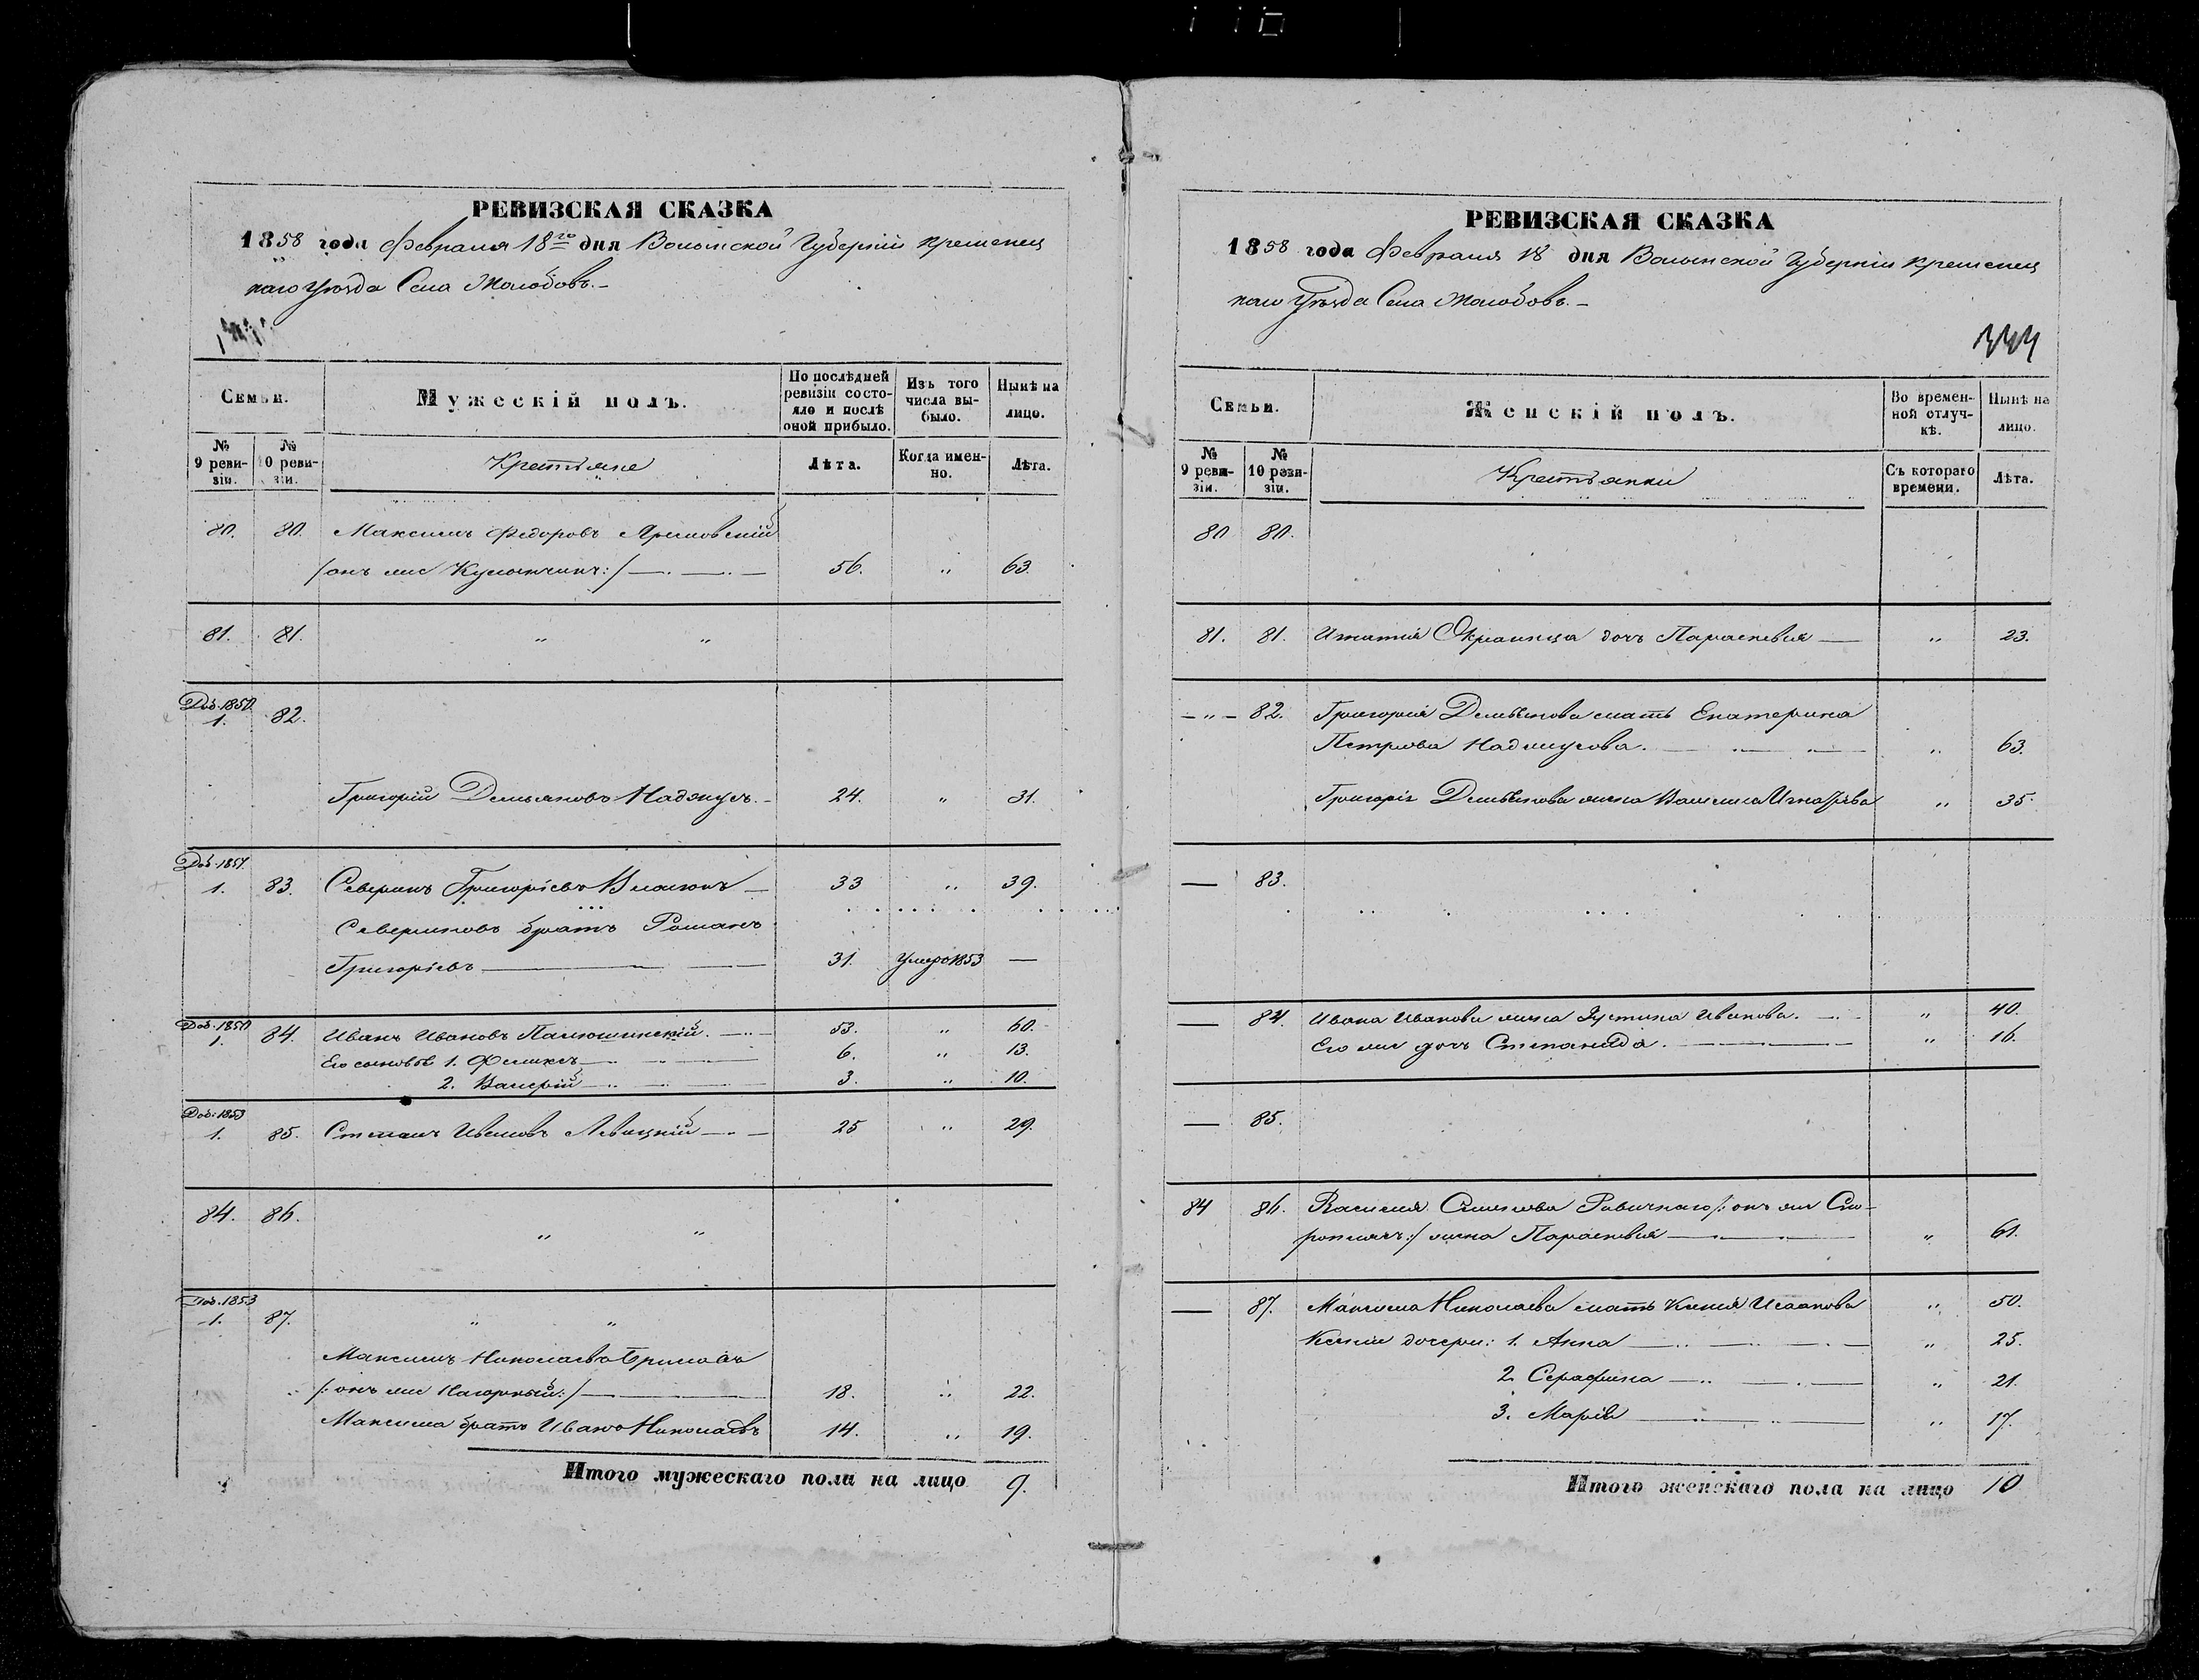 РЕВИЗСКАЯ СКАЗКА
1858 года Февраля 18го дня Волынской Губерніи Кременец
каго Уѣзда Села Жолобовъ. –
Семьи.
Мужескій полъ.
По послѣдней ревизіи состояло и послѣ оной прибыло.
Изъ того числа выбыло.
Нынѣ на лицо.
№ 9 ревизіи.
№ 10 ревизіи.
Крестьяне
Лѣта.
Когда именно.
Лѣта.
80. 80. Максимъ Федоровъ
/онъ же :/ 56. „ 63.
81. 81. „ „
Доб. 1850
1. 82.
Григорій Демьяновъ 24. „ 31.
Доб. 1851.
1. 83. Северинъ Григорьевъ 33 „ 39.
Севериновъ братъ Романъ
Григорьевъ 31. умеръ 1853 —
Доб. 1850
1. 84. Иванъ Ивановъ 53. „ 60.
Его сыновья 1. Феликсъ 6. „ 13.
2. Валерій 3. „ 10.
Доб: 1853
1. 85. Степанъ Ивановъ Левицкій 25 „ 29.
84. 86. „ „
Доб. 1853
1. 87. „ „
Максимъ Николаевъ
/:онъ же Нагорный:/ 18. „ 22.
Максима братъ Иванъ Николаевъ 14. „ 19.
Итого мужескаго пола на лицо 9.
РЕВИЗСКАЯ СКАЗКА
1858 года Февраля 18 дня Волынской Губерніи Кременец
каго Уѣзда Села Жолобовъ. –
Семьи.
Женскій полъ.
Во временной отлучкѣ.
Нынѣ на лицо.
№ 9 ревизіи.
№ 10 ревизіи.
Крестьянки
Съ котораго времени.
Лѣта.
80 80.
81. 81. Игнатія дочь Параскевія „ 23.
– „ – 82. Григорія Демьянова мать Екатерина
Петрова „ 63.
Григорія Демьянова жена „ 35.
— 83.
— 84. Ивана Иванова жена Устина Иванова. „ 40.
Его же дочь Степанида. „ 16.
— 85.
84 86. Василія /:онъ же
:/ жена Параскевія „ 61.
— 87. Максима Николаева мать Ксенія Исаакова „ 50.
Ксеніи дочери: 1. Анна „ 25.
2. Серафина „ 21.
3. Марія „ 17.
Итого женскаго пола на лицо 10